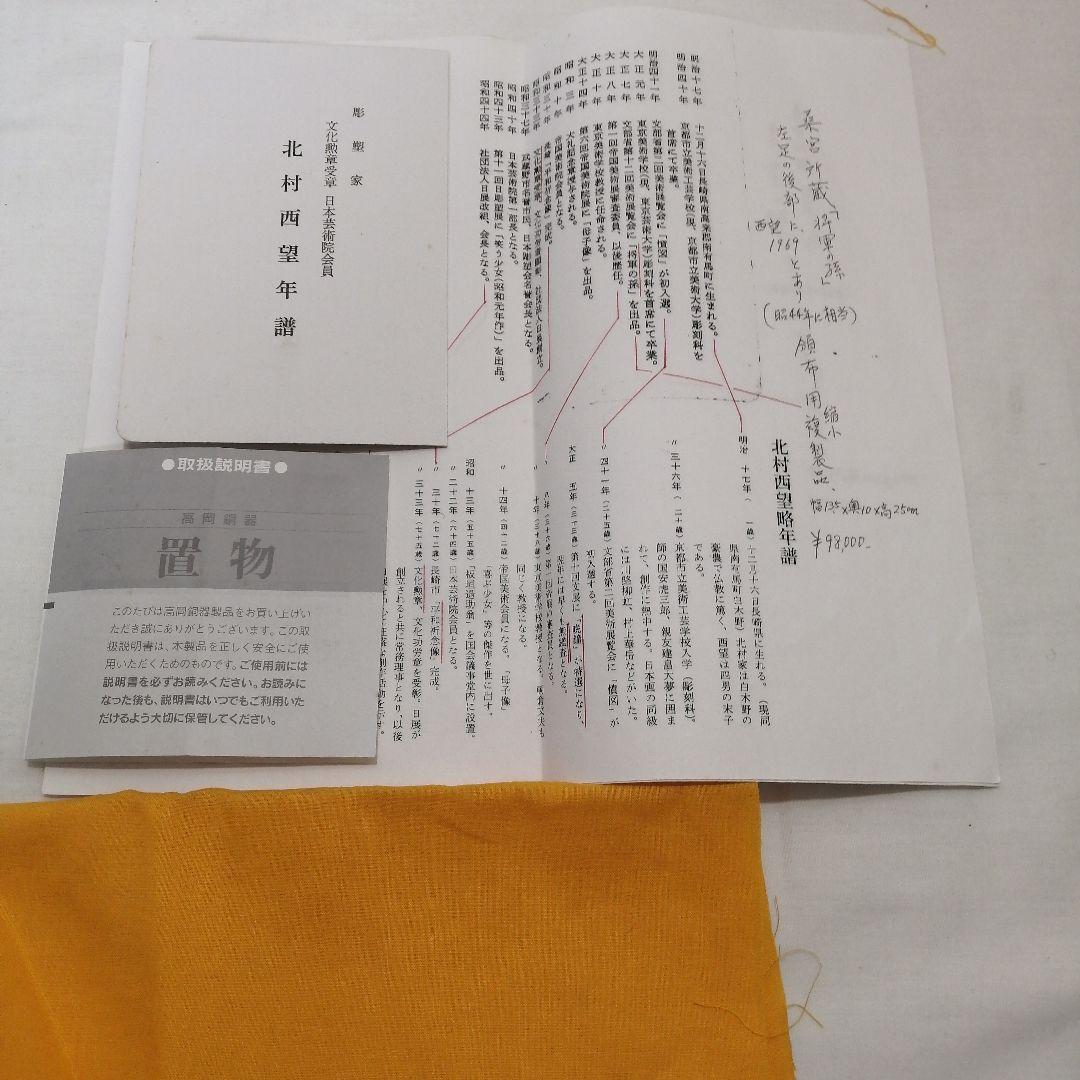 彫塑家
文化勲章受章 日本芸術院会員
北村西望年譜
●取扱説明書●
高岡銅器
置物
このたびは高岡銅器製品をお買い上げい
ただき誠にありがとうございます。この取
扱説明書は、本製品を正しく安全にご使
用いただくためのものです。ご使用前には
説明書を必ずお読みください。お読みに
なった後も、説明書はいつでもご利用いた
だけるよう大切に保管してください。
明治十七年 十二月十六日長崎県南高来郡南有馬町に生まれる。
明治四十年 京都市立美術工芸学校(現、京都市立美術大学)彫刻科を
首席にて卒業。
明治四十一年 文部省第二回美術展覧会に「憤図」が初入選。
大正元年 東京美術学校(現、東京芸術大学)彫刻科を首席にて卒業。
大正七年 文部省第十二回美術展覧会に「将軍の孫」を出品。
大正八年 第一回帝国美術展審査委員、以後歴任。
大正十年 東京美術学校教授に任命される。
大正十四年 第六回帝国美術院展に「母子像」を出品。
昭和三年 大礼記念章授与される。
昭和十年 帝国美術院会員となる。
昭和三十年 長崎「平和祈念像」完成。
昭和三十三年 文化勲章受章、文化功労者顕彰、社団法人日展創立。
昭和三十七年 武蔵野市名誉市民、日本彫塑会名誉会長となる。
昭和四十年 日本芸術院第一部長となる。
昭和四十三年 第十一回日彫塑展に「笑う少女(昭和元年作)」を出品。
昭和四十四年 社団法人日展改組、会長となる。
桑宮所蔵「将軍の孫」
左足の後部に、
西望
1969とあり
(昭44年に相当)
頒布用縮小複製品、
幅13.5×奥10×高25cm
¥98,000-
北村西望略年譜
明治 十七年( 一歳)十二月十六日長崎県に生れる。(現同
県南有馬町白木野)、北村家は白木野の
豪農で仏教に篤く、西望は四男の末子
である。
〃 三十六年(二十歳)京都市立美術工芸学校入学(彫刻科)。
師の国安虎三郎、親友建畠大夢に囲ま
れて、創作に熱中する。日本画の同級
には川路柳虹、村上華岳などがいた。
〃 四十一年(二十五歳)文部省第二回美術展覧会に「憤図」が
初入選する。
大正 五年(三十三歳)第十回文展に「晩鐘」が特選になり、
翌年には早くも無鑑査となる。
八年(三十六歳)第一回帝展の審査員となる。
十年(三十八歳)東京美術学校教授となる。朝倉文夫も
同じく教授になる。
〃 十四年(四十二歳)帝国美術会員になる。「母子像」
「喜ぶ少女」等の傑作を世に出す。
昭和 十三年(五十五歳)「板垣退助翁」を国会議事堂内に設置。
〃 二十二年(六十四歳)日本芸術院会員となる。
〃 三十年(七十二歳)長崎市「平和祈念像」完成。
〃 三十三年(七十五歳)文化勲章、文化功労章を受彰。日展が
創立されると共に常務理事となり、以後